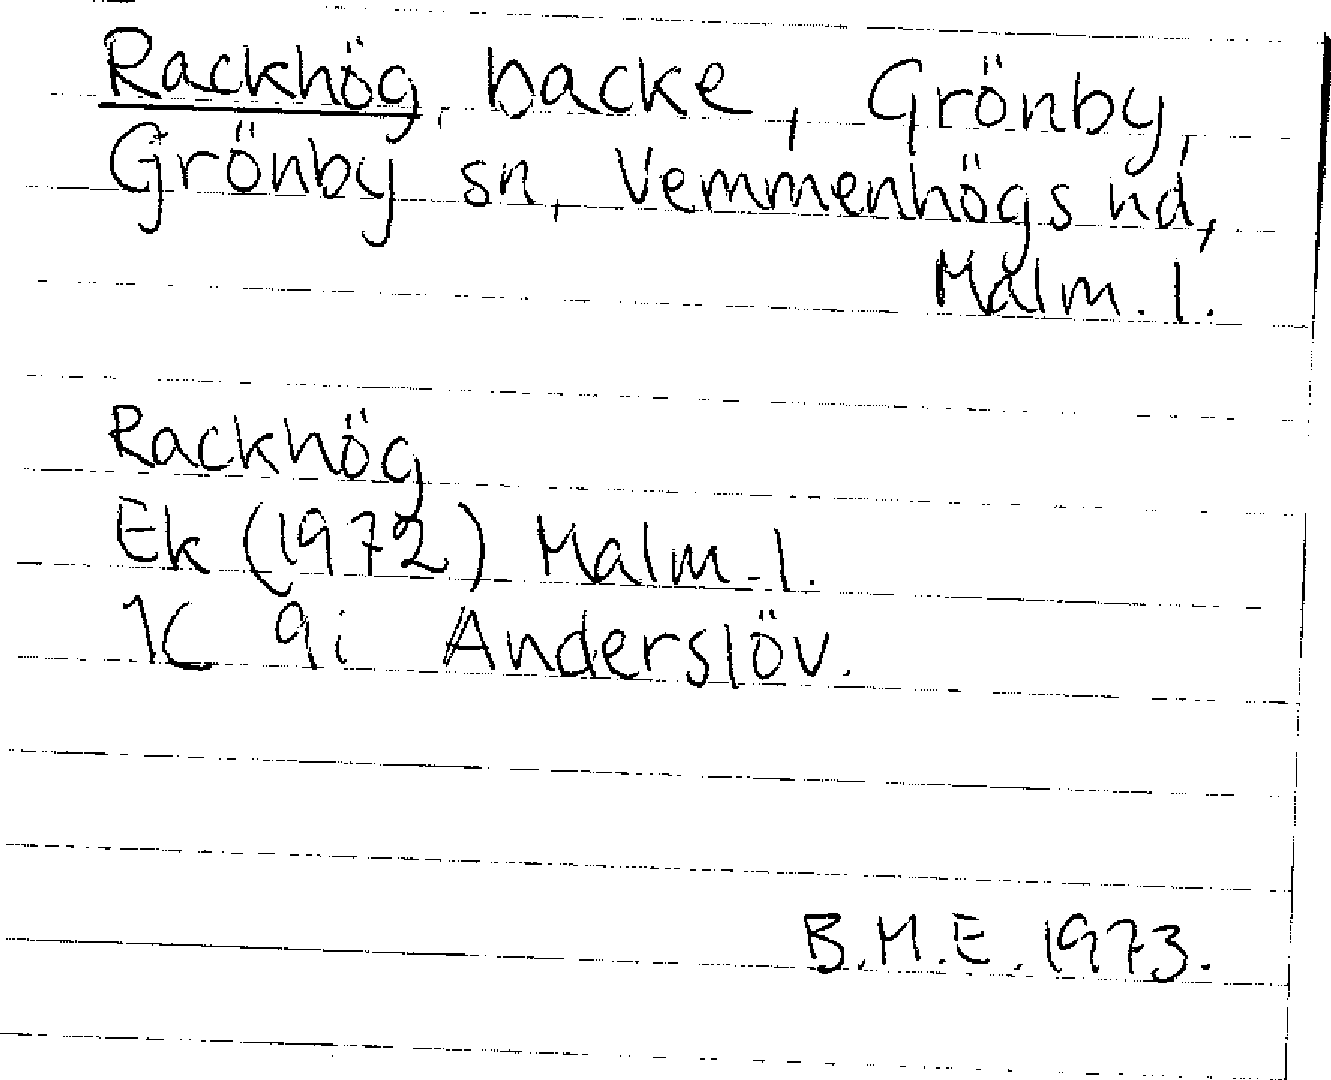 Rackhög, backe, Grönby,
Grönby sn, Vemmenhögs hd,
Malm. l.
Rackhög
Ek (1972) Malm. l.
1C 9i Anderslöv.
B.M.E. 1973.